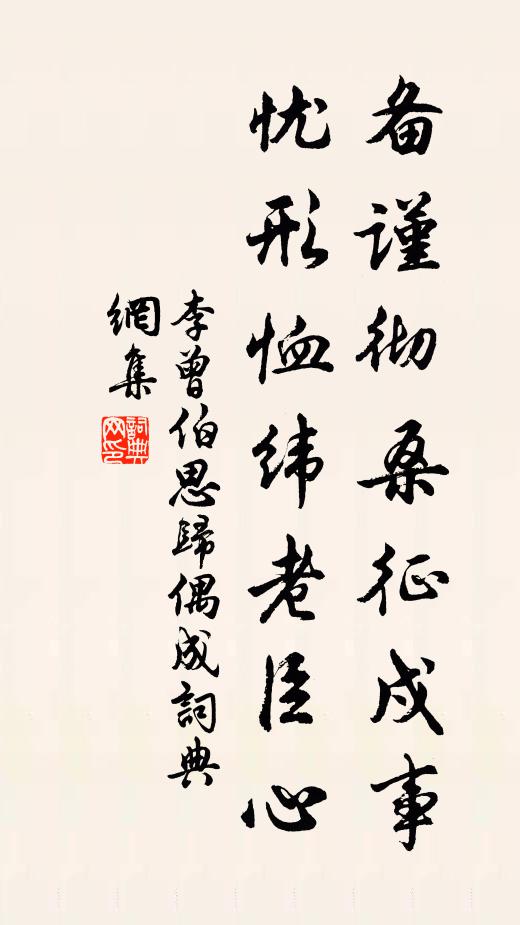 备谨彻桑征戍事
忧形恤纬老臣心
李曾伯思歸偶成詞典
網集
詞典
网印